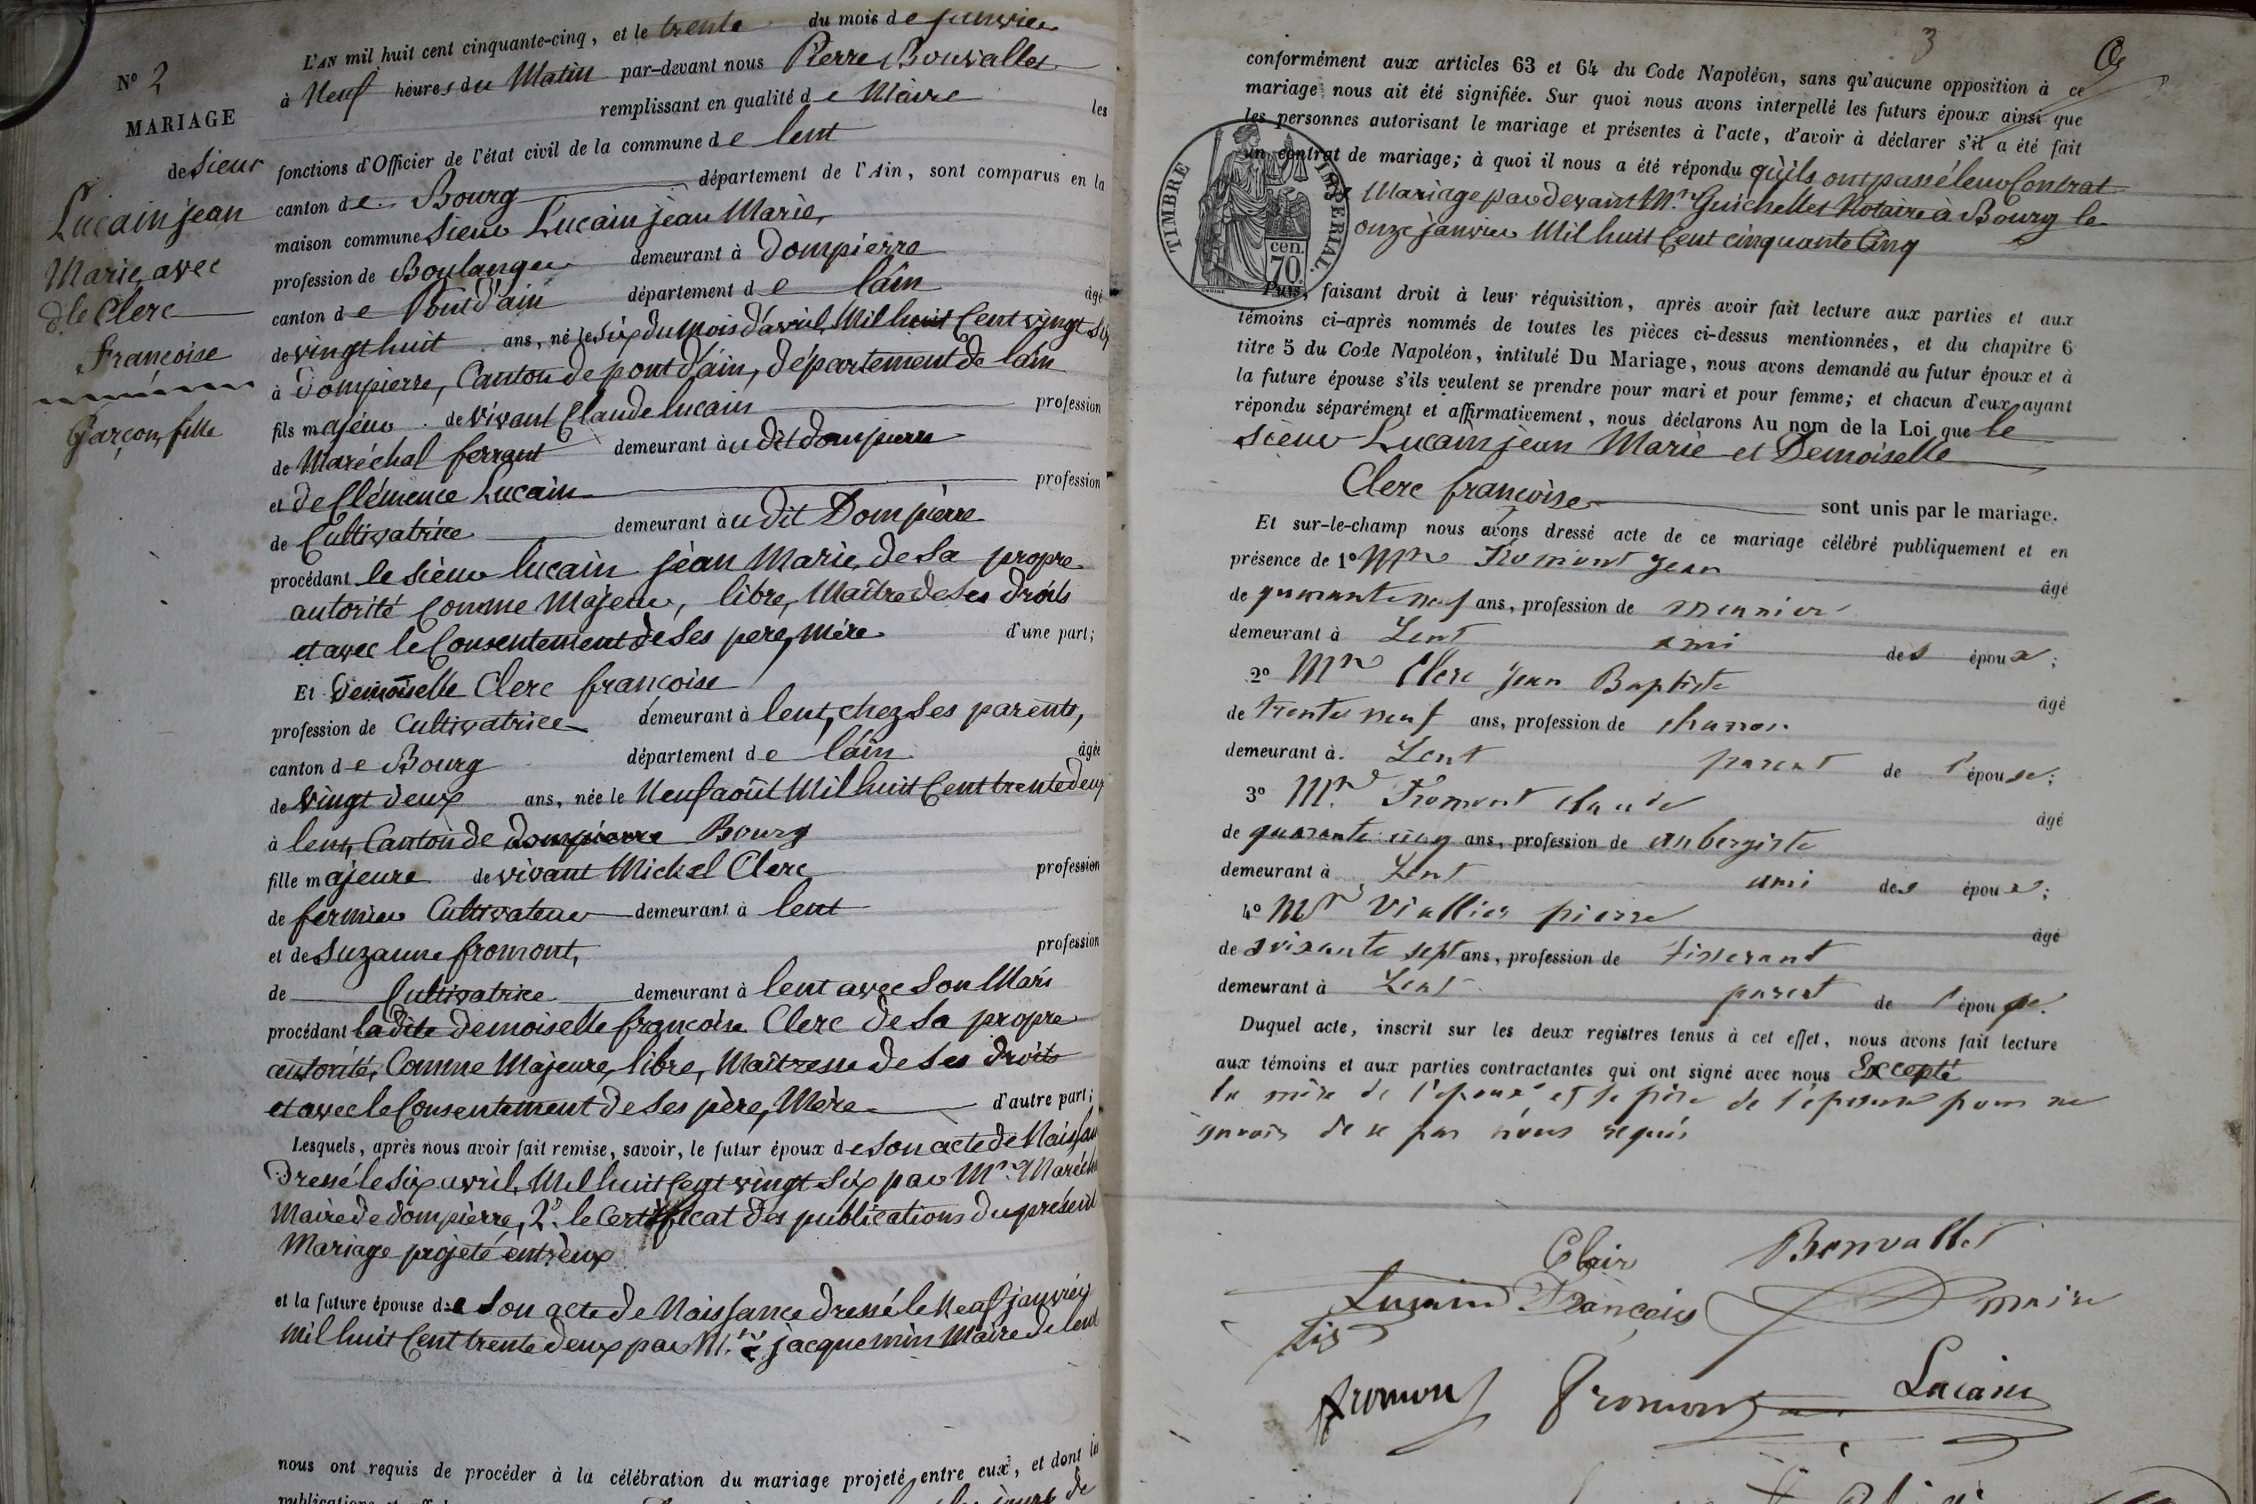 N° 2
MARIAGE
de Sieur
Lucain jean
Marie, avec
dlle Clerc
françoise
Garçon, fille
L'AN mil huit cent cinquante-cinq, et le trente du mois de janvier
à Neuf heures du Matin par-devant nous Pierre Bonvallet
remplissant en qualité de Maire les
fonctions d'Officier de l'état civil de la commune de lent
canton de Bourg département de l'Ain, sont comparus en la
maison commune Sieur Lucain jean Marie,
profession de Boulanger demeurant à Dompierre
canton de Pont d'ain département de lain âgé
de vingt huit ans, né le Six du Mois d'avril, Mil huit Cent vingt Six
à Dompierre, Canton de pont d'ain, département de lain
fils majeur de vivant Claude lucain profession
de Maréchal ferrant demeurant à udit dompierre
et de Clémence Lucain profession
de Cultivatrice demeurant à udit Dompierre
procédant le Sieur lucain jean Marie, de Sa propre
autorité Comme Majeur, libre, Maître de Ses droits
et avec le Consentement de Ses père, Mère d'une part;
Et Demoiselle Clerc françoise
profession de Cultivatrice demeurant à lent, chez Ses parents,
canton de Bourg département de lain âgée
de vingt deux ans, née le Neuf août Mil huit Cent trente deux
à lent, Canton de dompierre Bourg
fille majeure de vivant Michel Clerc profession
de fermier Cultivateur demeurant à lent
et de Suzanne fromont, profession
de Cultivatrice demeurant à lent avec Son Mari
procédant ladite demoiselle françoise Clerc de Sa propre
autorité, Comme Majeure, libre, Maîtresse de Ses droits
et avec le Consentement de Ses père, Mère d'autre part;
Lesquels, après nous avoir fait remise, savoir, le futur époux de Son acte de Naissan
Dressé le Six avril, Mil huit Cent vingt Six par Mr Maréch
Maire de dompierre, 2° le Certificat des publications du présent
Mariage projeté entr'eux
et la future épouse de Son acte de Naissance dressé le Neuf janvier
Mil huit Cent trente deux par M. jacquemin Maire de lent
nous ont requis de procéder à la célébration du mariage projeté entre eux, et dont les
3
conformément aux articles 63 et 64 du Code Napoléon, sans qu'aucune opposition à ce
mariage nous ait été signifiée. Sur quoi nous avons interpellé les futurs époux ainsi que
les personnes autorisant le mariage et présentes à l'acte, d'avoir à déclarer s'il a été fait
un contrat de mariage; à quoi il nous a été répondu qu'ils ont passé leur Contrat
Mariage par devant Mr Guichellet Notaire à Bourg le
onze janvier Mil huit Cent cinquante Cinq
TIMBRE IMPERIAL.
70 cen
Puis, faisant droit à leur réquisition, après avoir fait lecture aux parties et aux
témoins ci-après nommés de toutes les pièces ci-dessus mentionnées, et du chapitre 6
titre 5 du Code Napoléon, intitulé Du Mariage, nous avons demandé au futur époux et à
la future épouse s'ils veulent se prendre pour mari et pour femme; et chacun d'eux ayant
répondu séparément et affirmativement, nous déclarons Au nom de la Loi que le
Sieur Lucain jean Marie et Demoiselle
Clerc françoise sont unis par le mariage.
Et sur-le-champ nous avons dressé acte de ce mariage célébré publiquement et en
présence de 1° Mr Fromont Jean âgé
de quarante neuf ans, profession de meunier
demeurant à Lent ami des époux;
2° Mr Clerc Jean Baptiste âgé
de trente neuf ans, profession de charron
demeurant à Lent parent de l'épouse;
3° Mr Fromont claude âgé
de quarante cinq ans, profession de aubergiste
demeurant à Lent ami des époux;
4° Mr Viallier pierre âgé
de soixante sept ans, profession de tisserand
demeurant à Lent parent de l'épouse.
Duquel acte, inscrit sur les deux registres tenus à cet effet, nous avons fait lecture
aux témoins et aux parties contractantes qui ont signé avec nous Excepté
la mère de l'époux et le père de l'épouse pour ne
savoir de ce par nous requis
Clair Bonvallet
Lucain François maire
fils
fromont fromont Lucain